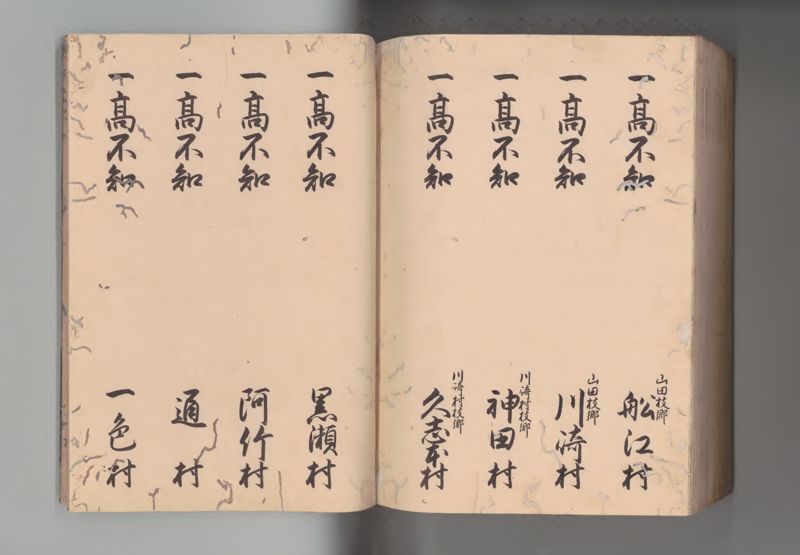 一髙不知 山田枝郷 舩江村
一髙不知 山田枝郷 川崎村
一髙不知 川崎村枝郷 神田村
一髙不知 川崎村枝郷 久志本村
一髙不知 黒瀬村
一髙不知 阿竹村
一髙不知 通村
一髙不知 一色村